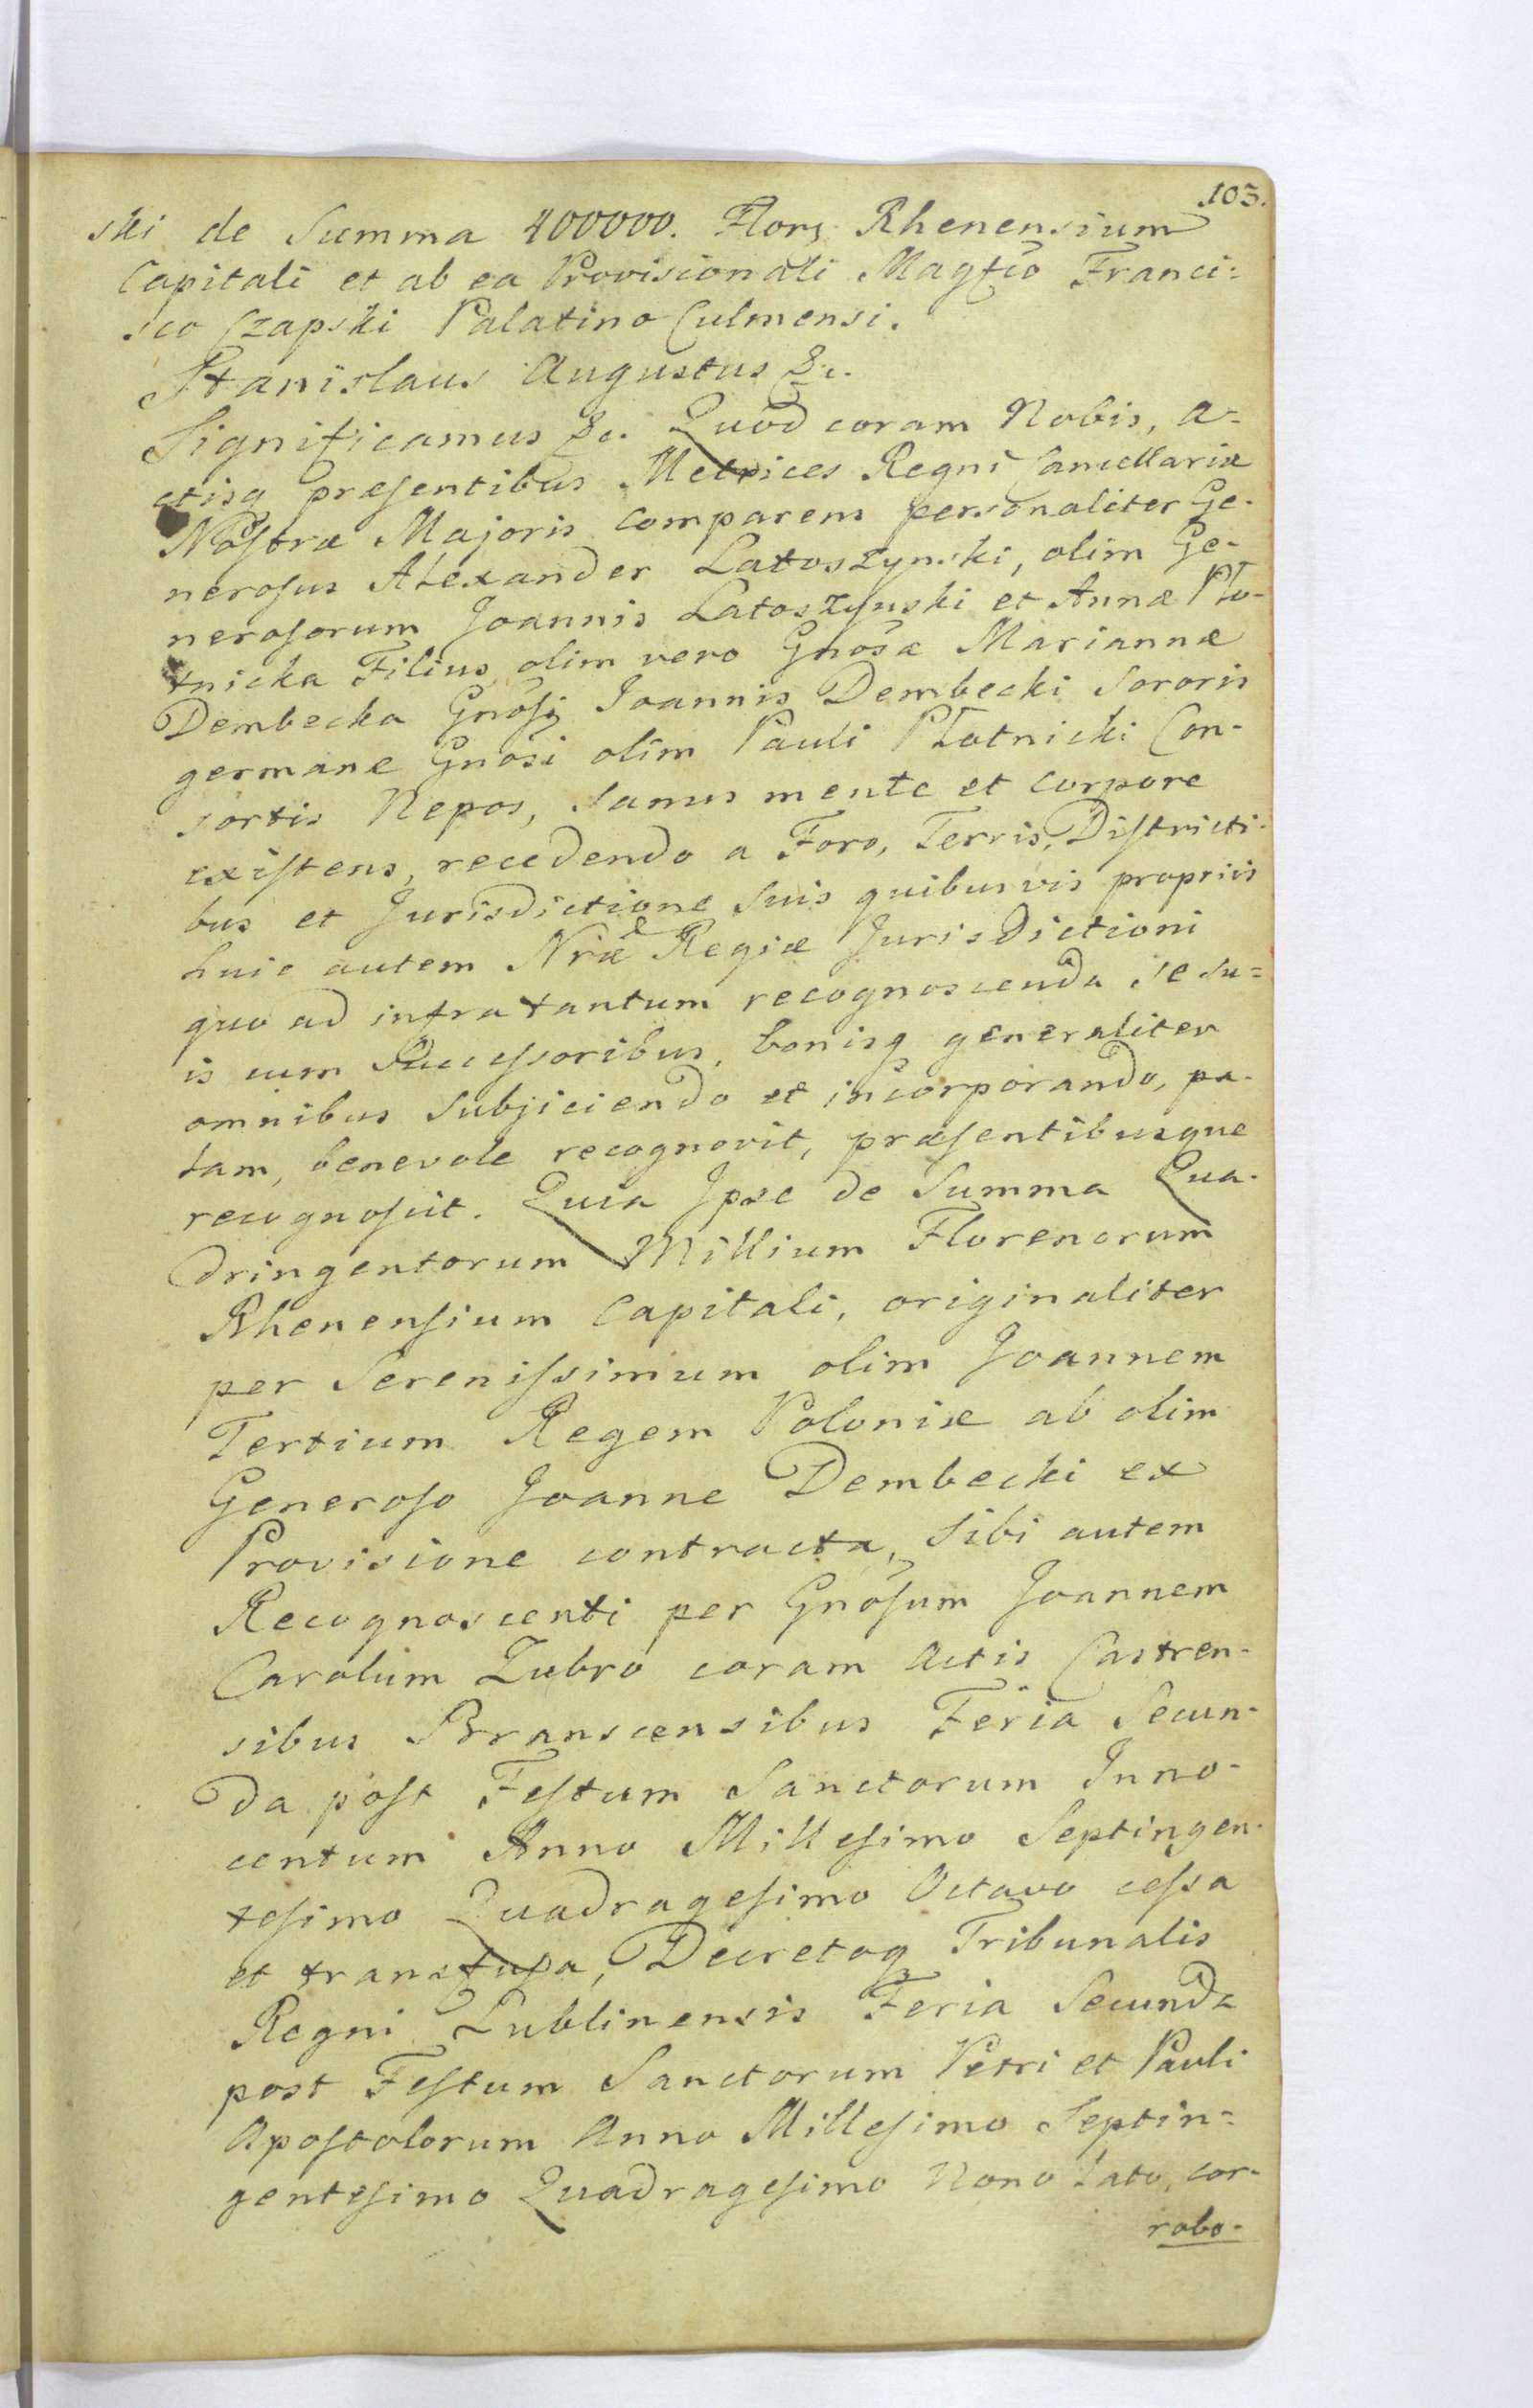 103.
ski de Summa 400000. Flor: Rhenensium
Capitali et ab ea Provisionali Magfco Franci=
sco Czapski Palatino Culmensi.
Stanislaus Augustus &c.
Significamus &c. Quod coram Nobis, a=
ctisq præsentibus Metrices Regni Cancellariæ
Nostræ Majoris comparens personaliter Ge-
nerosus Alexander Latoszynski, olim Ge-
nerosorum Joannis Latoszynski et Annæ Pło-
tnicka Filius, olim vero Gnosæ Mariannæ
Dembecka Gnosi Joannis Dembecki Sororis
germanæ Gnosi olim Pauli Płotnicki Con-
sortis Nepos, sanus mente et corpore
existens, recedendo a Foro, Terris, Districti-
bus et Jurisdictione suis quibusvis propriis
huic autem Nræ Regiæ Jurisdictioni
quo ad infra tantum recognoscenda se su=
is cum Successoribus, bonisq generaliter
omnibus subjiciendo et incorporando, pa-
lam, benevole recognovit, præsentibusque
recognoscit. Quia Ipse de Summa Qua-
dringentorum Millium Florenorum
Rhenensium Capitali, originaliter
per Serenissimum olim Joannem
Tertium Regem Poloniæ ab olim
Generoso Joanne Dembecki ex
Provisione contracta, sibi autem
Recognoscenti per Gnosum Joannem
Carolum Zubro coram Actis Castren-
sibus Branscensibus Feria Secun-
da post Festum Sanctorum Inno-
centum Anno Millesimo Septingen-
tesimo Quadragesimo Octavo cessa
et transfusa, Decretoq Tribunalis
Regni Lublinensis Feria Secunda
post Festum Sanctorum Petri et Pauli
Apostolorum Anno Millesimo Septin=
gentesimo Quadragesimo Nono lato, cor-
robo-